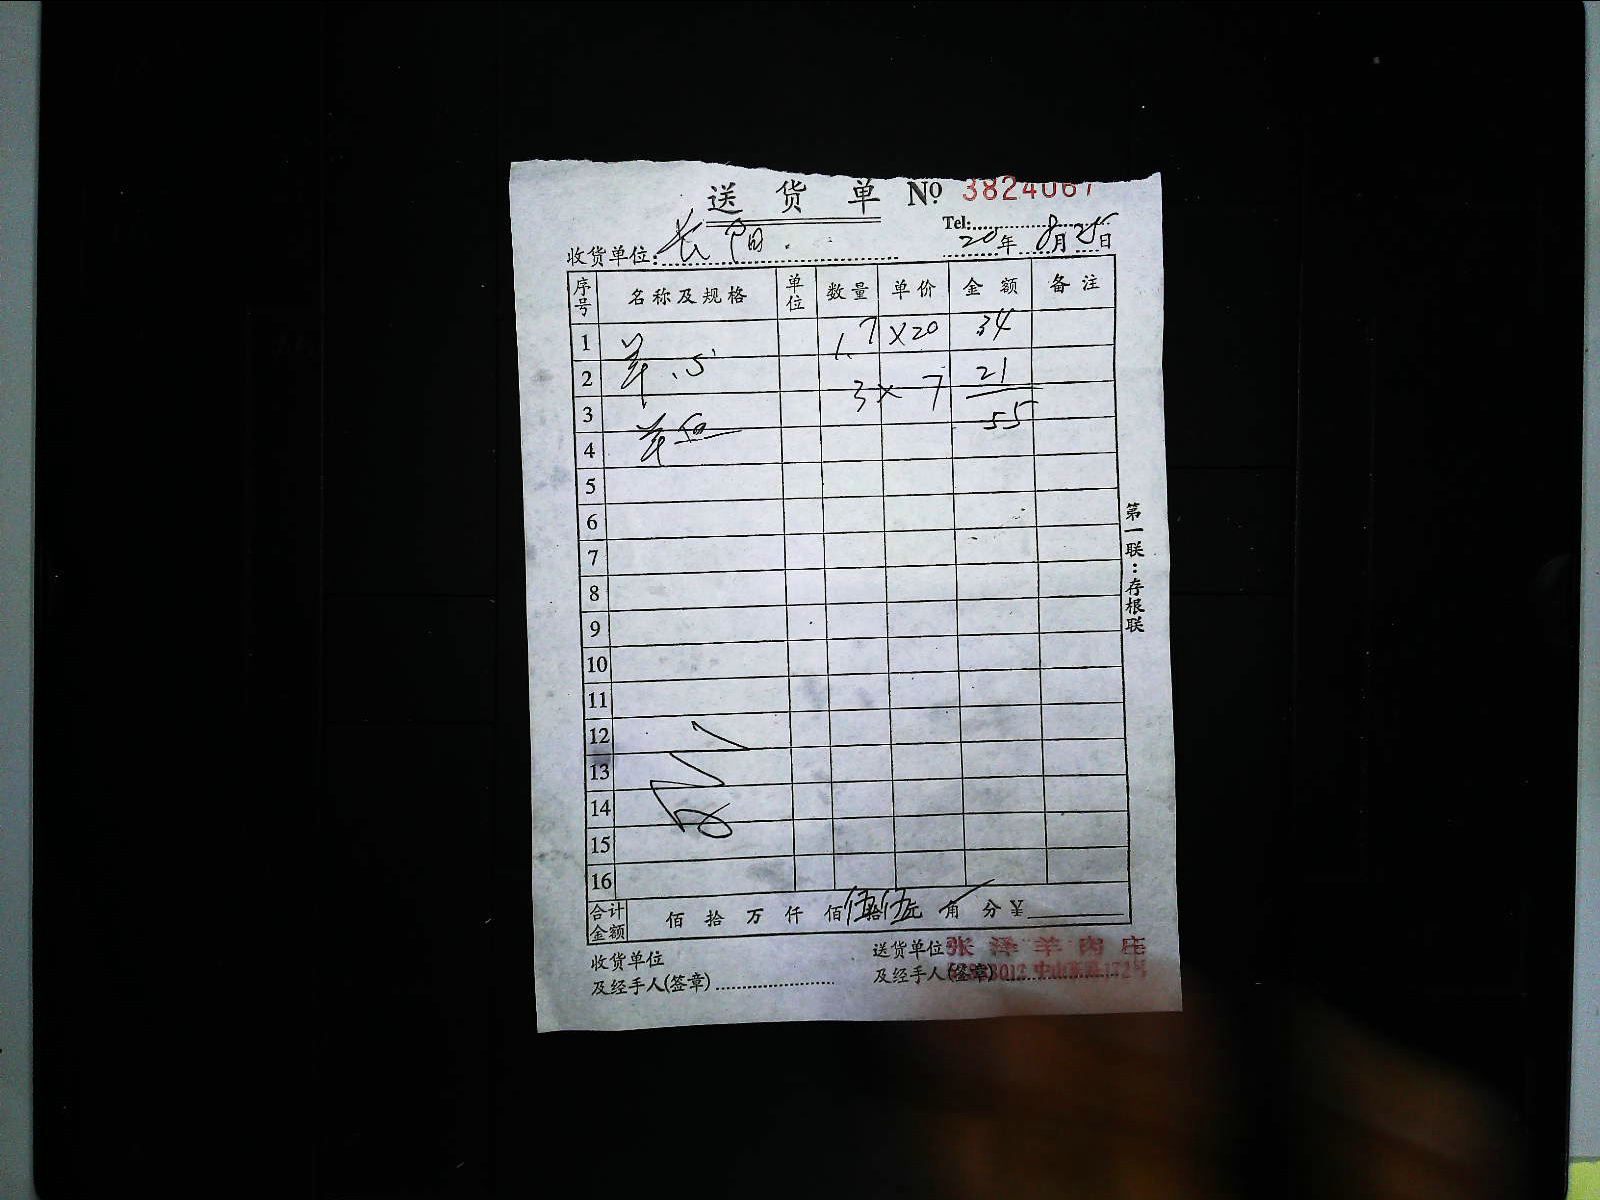 送货单 No 3824067
Tel:
收货单位: 长阳 20 年 8月25日
序号 名称及规格 单位 数量 单价 金额 备注
1 羊心 1.7 ×20 34
2 3 × 7 21
3 羊血 55
4
5
6
7
8
9
10
11
12
13
14
15
16
合计金额 佰 拾 万 仟 佰 伍拾 伍元 角 分 ¥
第一联：存根联
收货单位 送货单位 张泽羊肉庄
及经手人(签章) 及经手人(签章)